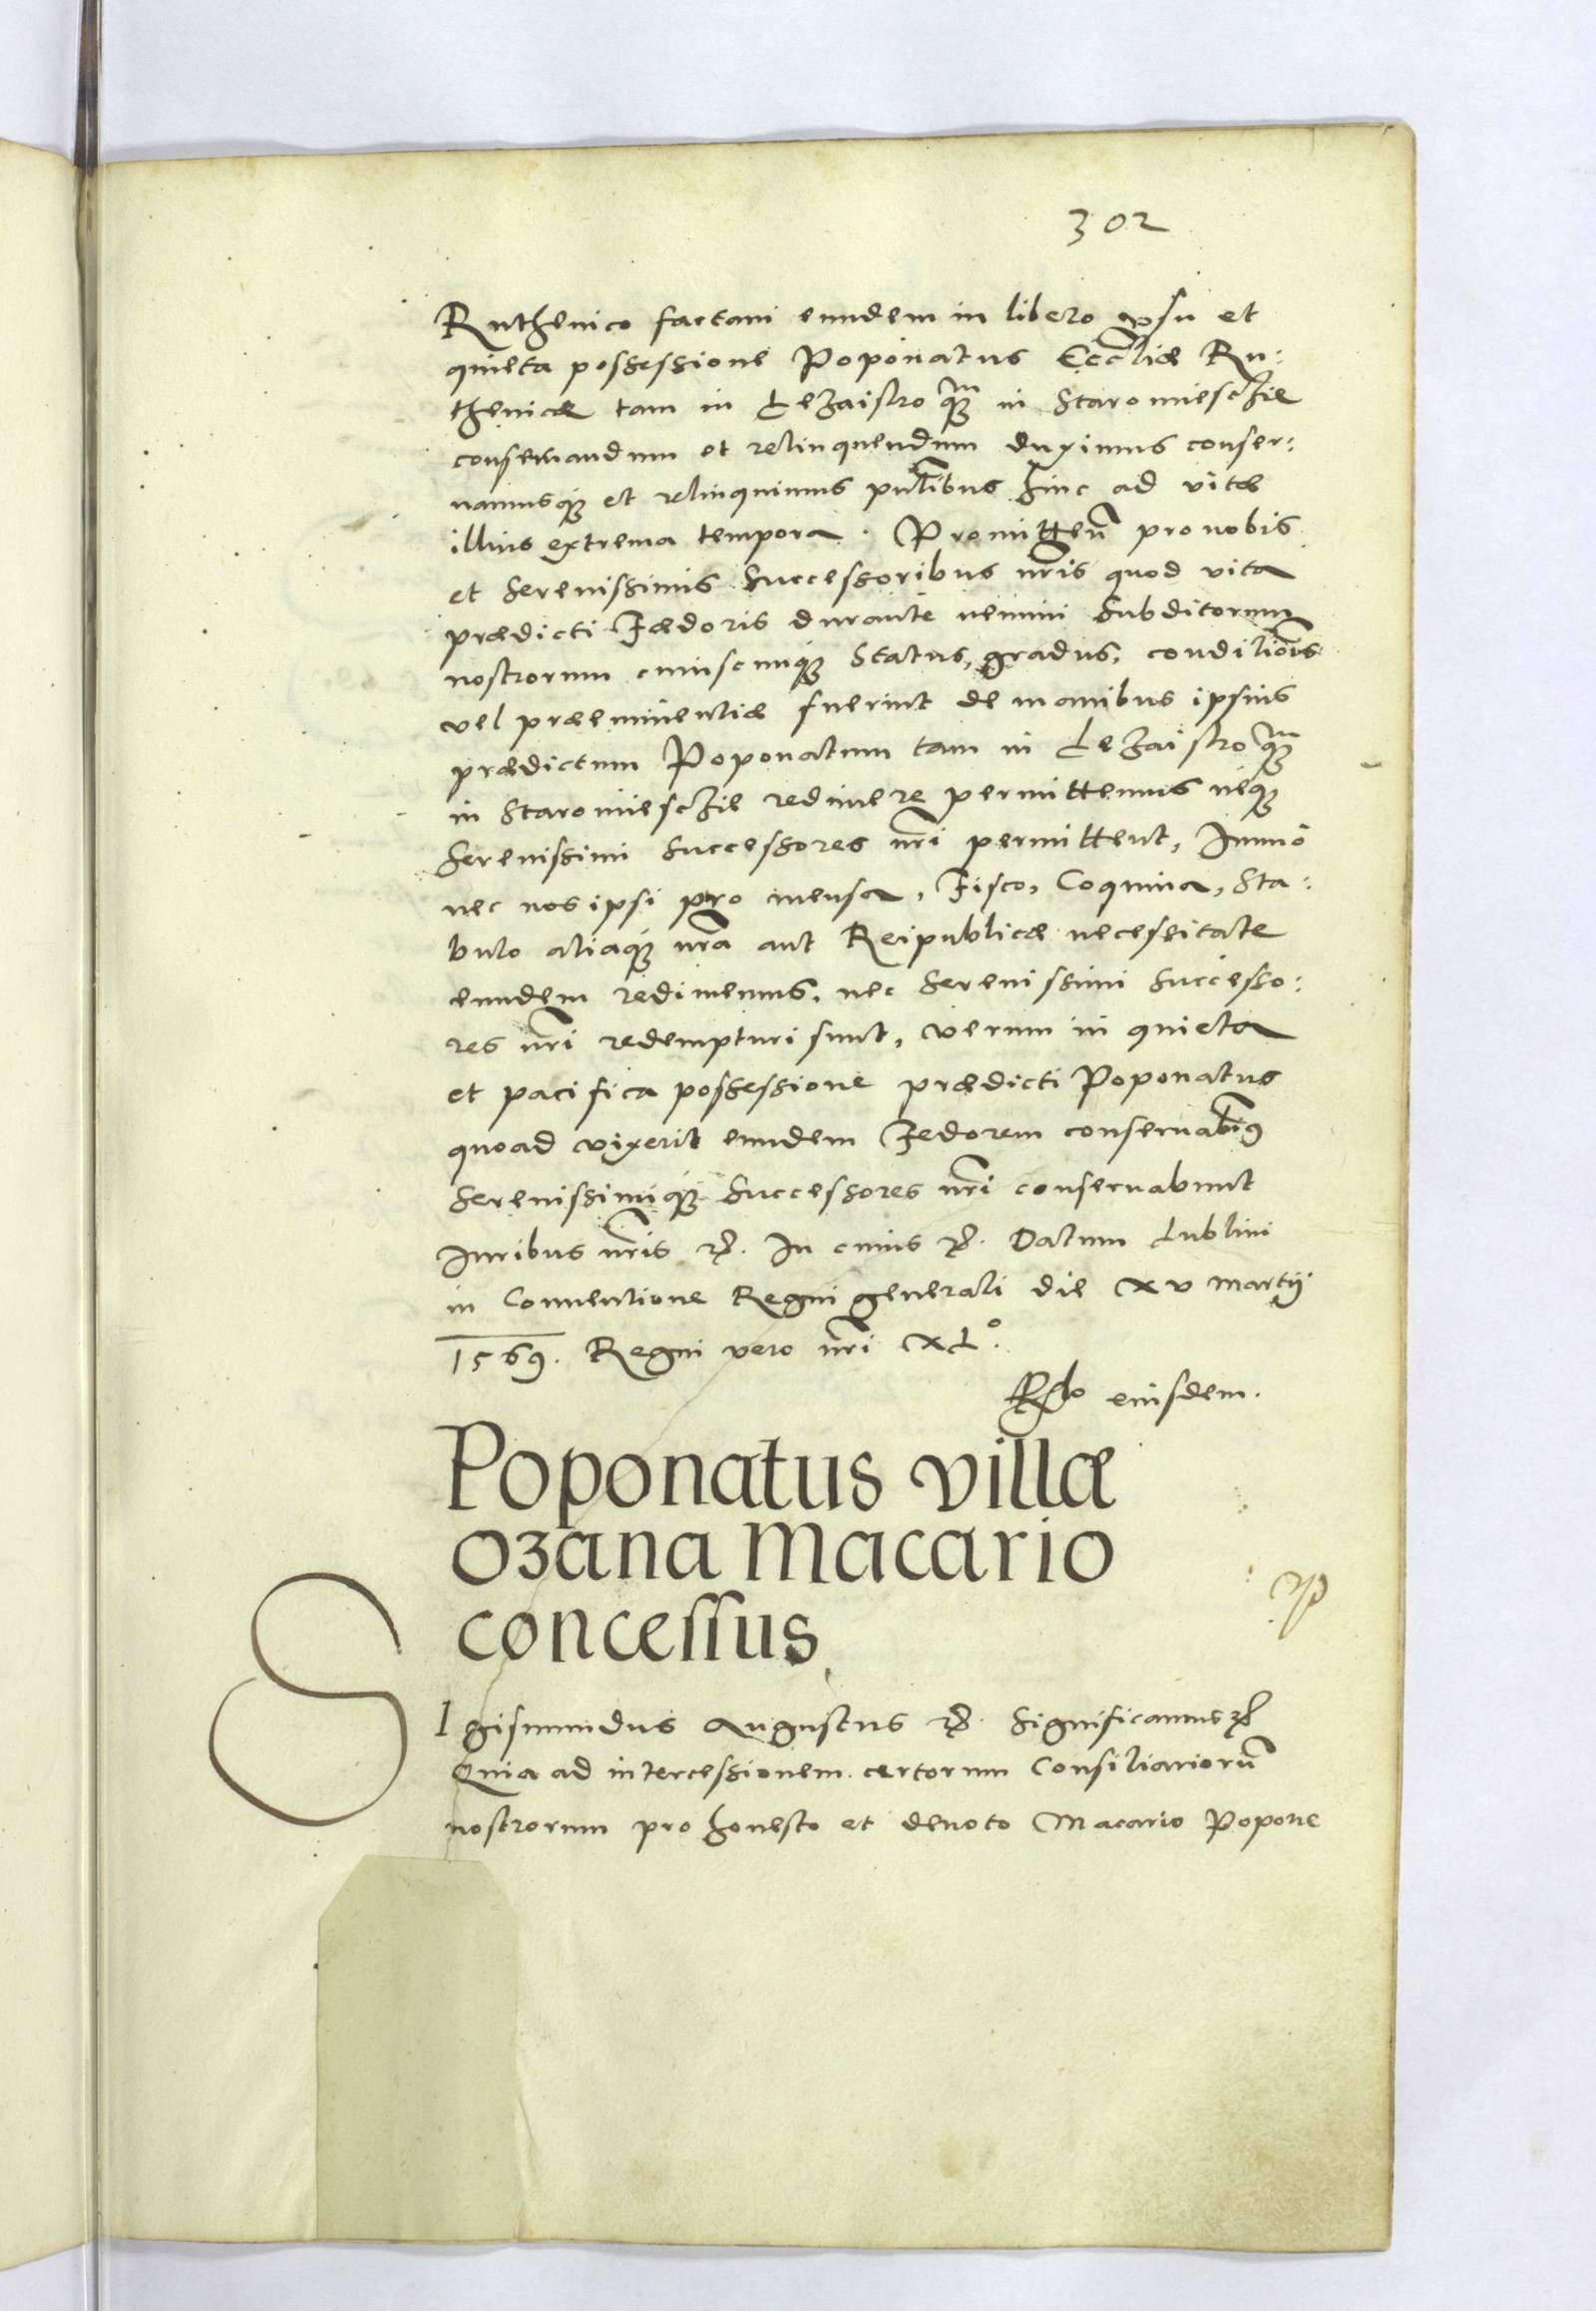 302
Ruthenico factam eundem in libero usu et
quieta possessione Poponatus Eccliæ Ru:
thenicæ tam in Leżaisko qm̃ in Staromiesczie
conseruandum et relinquendum duximus conser:
uamusq; et relinquimus pñtibus hinc ad vitæ
illius extrema tempora. Promitteñ pro nobis
et Serenissimis Successoribus nr̃is quod vita
prædicti Fædoris durante nemini Subditorum
nostrorum cuiuscunq; Status, gradus, conditiõis
vel præeminentiæ fuerint de manibus ipsius
prædictum Poponatum tam in Leżaisko qm̃
in Staromiesczie redimere permittemus neq;
Serenissimi Successores nr̃i permittent, Immo
nec nos ipsi pro mensa, Fisco, Coquina, Sta:
bulo aliaq; nr̃a aut Reipublicæ necessitate
eundem redimemus, nec Serenissimi Successo:
res nr̃i redempturi sunt, verum in quieta
et pacifica possessione prædicti Poponatus
quoad vixerit eundem Fedorem conseruabim9
Serenissimiq; Successores nr̃i conseruabunt
Iuribus nr̃is etc. In cuius etc. Datum Lublini
in Conuentione Regni generali die XV Martij
1569. Regni vero nr̃i XLo.
Rlo eiusdem.
Poponatus villæ
Ozana Macario
concessus
SIgismundus Augustus etc. Significamus etc
Quia ad intercessionem certorum Consiliariorũ
nostrorum pro honesto et deuoto Macario Popone